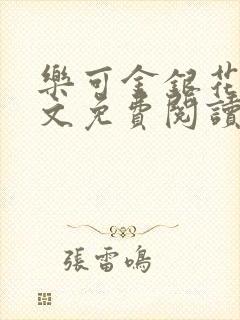 樂可金銀花
文免費閱讀
張雷鳴